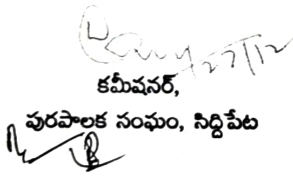 27/12
కమీషనర్,
పురపాలక సంఘం, సిద్దిపేట